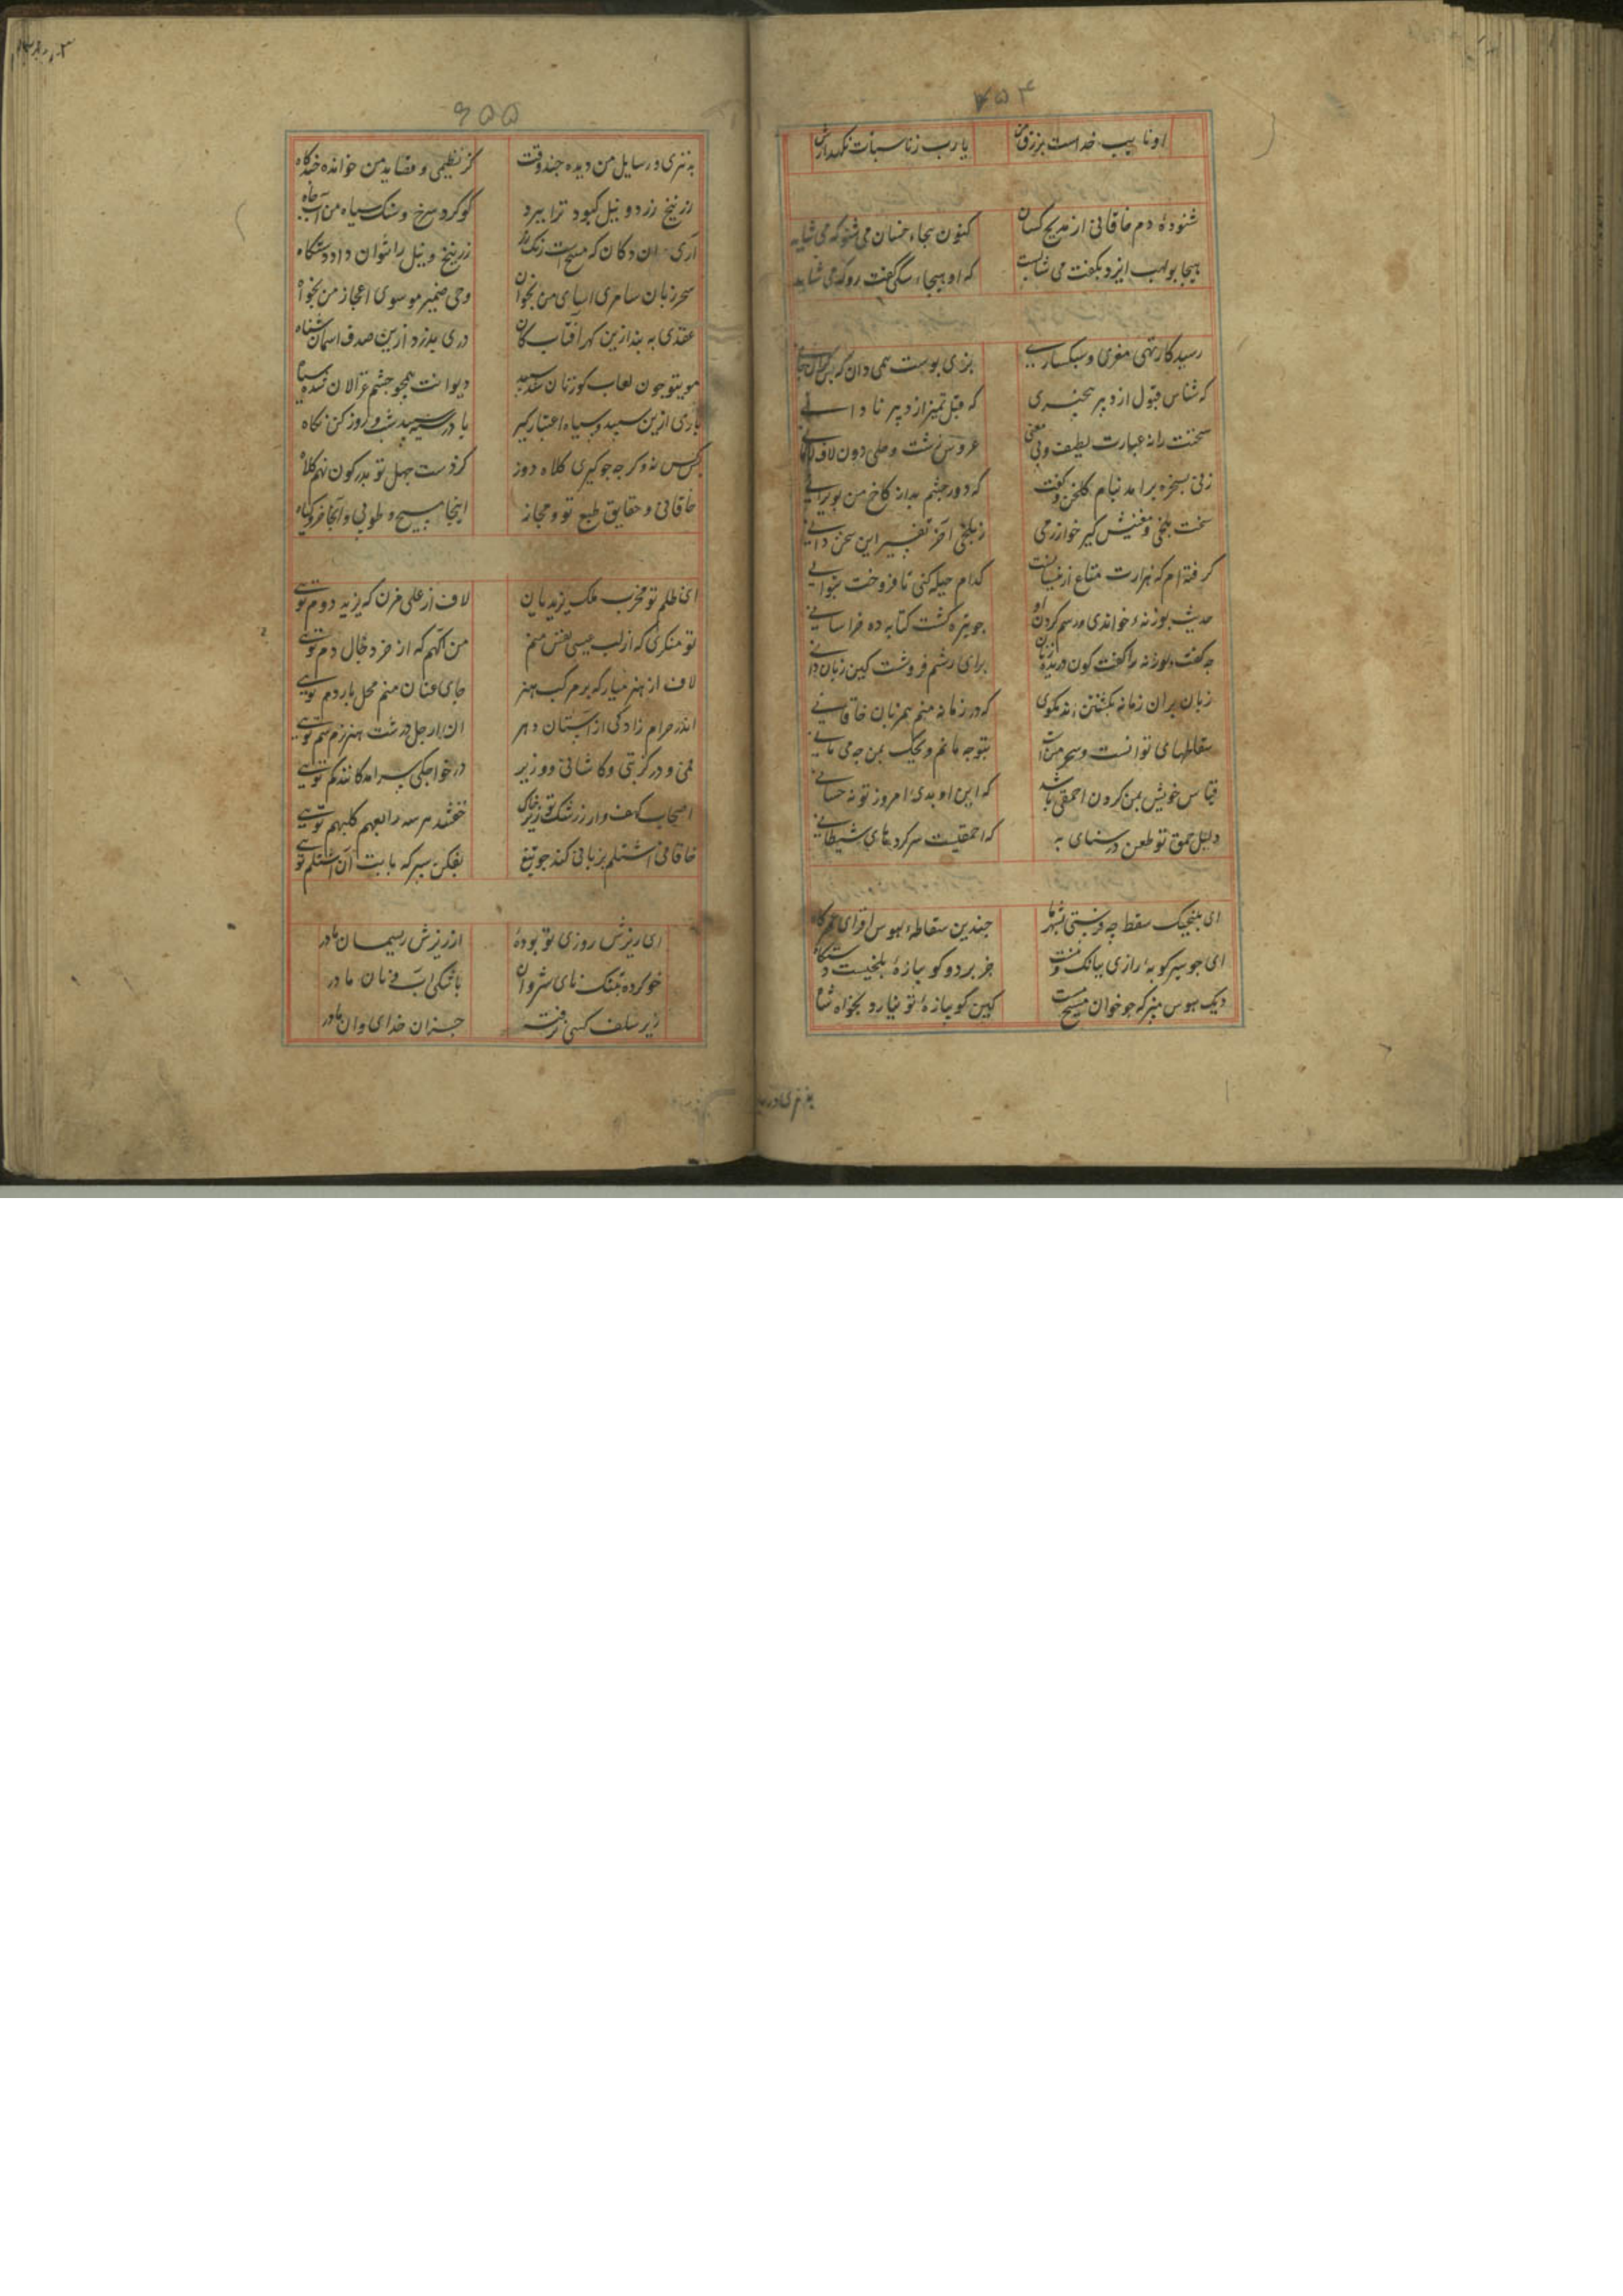 ۶۵۴
او نایب خداست برزق من
یا رب زنا سبات نگهدارش
شنوده دم خاقانی از مدیح کسان
کنون هجاء خسان می شنو که می شاید
هیجا بولهب ایزد بگفت می شایست
که او هیجاء سگی گفت رو که می شاید
رسید کار تهی مغزی و سبکساری
بزی بوست همی دان که بس
که شناس قبول از دبر بیخبری
که قبل تمیز از دبر نادانی
سخنت را نه عبارت لطیف و نی معنی
عروس زشت و حلی دون لاف لامانی
زنی بسخره برامد ببام گلخن و گفت
که دور چشم بد از کاخ من بویرانی
سخت بلخی و معنیش گیر خوارزمی
ز بلخی آخر تفسیر این سخن دانی
گرفته ام که هزارت متاع ازینسانست
کدام حیله کنی تا فروخت بتوانی
حدیث بوزنه خواندی و رسم کردن او
چو بتره گشت کتابه ده خراسانی
چه گفت بوزنه را گفت کون دریده زنان
برای رشم فروشت کین زبان دانی
زبان بران زمانه بکشتند مگوی
که در زمانه منم همزبان خاقانی
سقاطهای توانست و سحر من است
بتو چه مانم ویحک بمن چه می مانی
قیاس خویش بمن کردن احمقی باشد
که ابن اوبدیٔ امروز تو نه حسانی
دلیل حمق تو طعن در سنای به
که احمقیست سر کرد های شیطانی
ای بلخیک سقط چه فرستی بشهر ما
چندین سقاطهٔ هوس افزای عمر کاه
ای جو سیر کوبه رازی ببانک و نیست
جز بر دو کو بیازهٔ بلخیست دستگاه
دیک هوس مپز که چو خوان مسیح هست
کین گو بیازهٔ تو نیارد بخواه شاه
بنثری و رسایل
۶۵۵
به نثری و رسایل من دیده چند وقت
کز نظمی و قصاید من خوانده چندگاه
زرنیخ زرد و نیل کبود ترا ببرد
گوگرد سرخ و مشک سیاه من آب و جاه
آری دران دکان که مسیحاست رنگ رز
زرنیخ و نیل را نتوان داد دستگاه
سحر زبان سامری اسای من بخوان
وحی ضمیر موسوی اعجاز من بخواه
عقدی به بند ازین گهر آفتاب کان
دری بدزد ازین صدف اسمان شناه
موی تو چون لعاب گوزنان شده سپید
دیوانت همچو چشم غزالان شده سیاه
باری ازین سپید و سیاه اعتبار گیر
یا در سیه سپید شب و روز کن نگاه
کرکس نه و گر چه چو گیری کلاه دوز
کز دست جهل تو بدر کون نهم کلاه
خاقانی و حقایق طبع تو و مجاز
اینجا مسیح و طوبی و آنجا خر و گیاه
ای ظلم تو مخرب ملک یزیدیان
لاف از علی مزن که یزید دوم تویی
تو منکری که از لب عیسی نفس منم
من آگهم که از خر دجال دم تویی
لاف از هنر میار که بر مرکب هنر
جای عنان منم محل بار دم تویی
اندر حرام زادگی از استان دهر
ان ارجل درشت هنر زم سم تویی
قمی و درگزینی و کاشانی دو وزیر
در خواجگی سرامدکانند کم تویی
اصحاب کهف وار ز رشک تو زیر خاک
خفتند هر سه رابعهم کلبهم تویی
خاقانی اشتلم بزبانی کند چو تیغ
بفکن سپر که بابت آن اشتلم تویی
ای ریزش روزی تو بوده
از ریزش ریسمان مادر
خو کرده بتنگ نای شروان
با تنگی آب و نان مادر
زیر سلف کسی نرفته
جز آن خدای و آن مادر